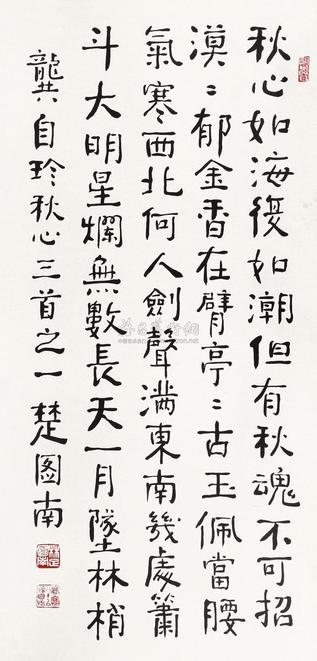 秋心如海復如潮但有秋魂不可招
漠〻郁金香在臂亭〻古玉佩當腰
氣寒西北何人劍聲滿東南幾處簫
斗大明星爛無數長天一月墜林梢
龔自珍秋心三首之一 楚圖南